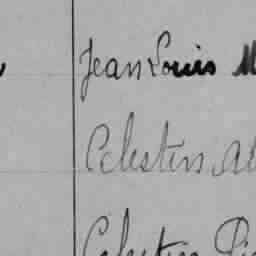 Jean Louis M
Celestin Al
Celestin Pi